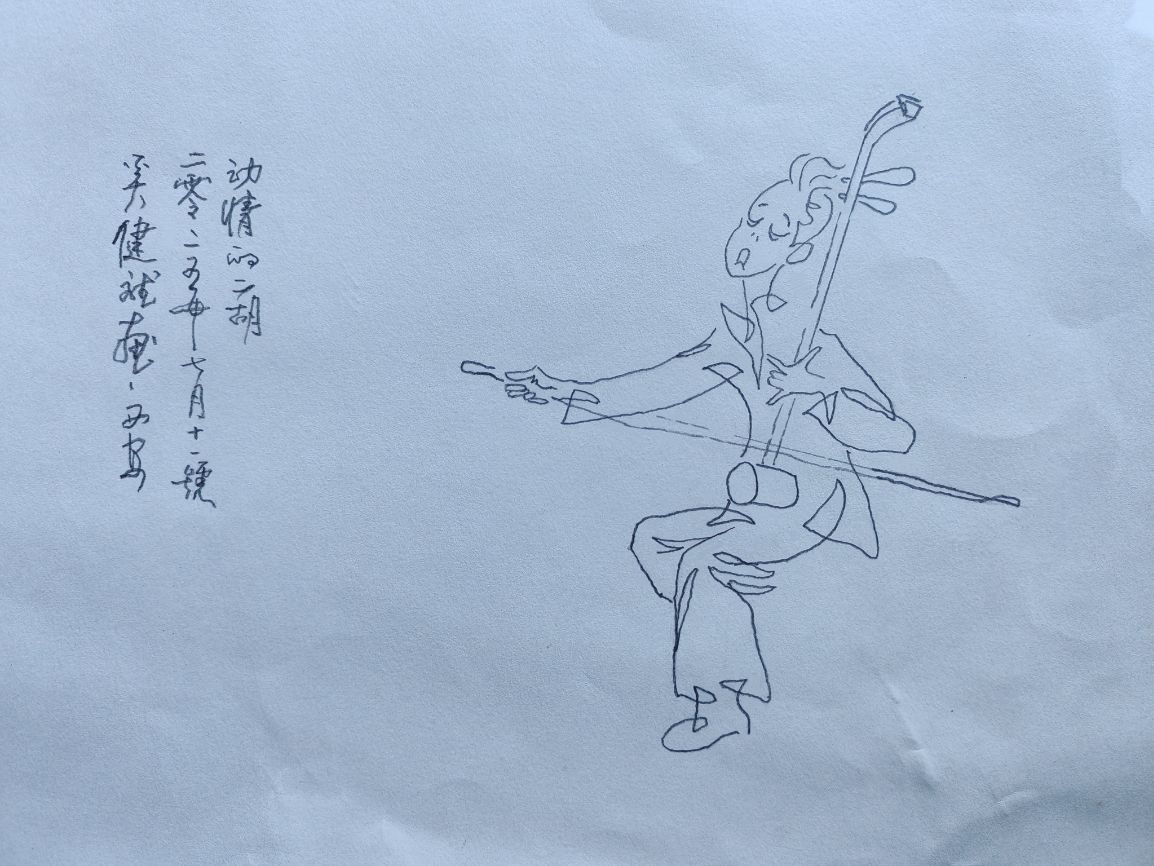 动情的二胡
二零二五年七月十一號
吴健斌画、西安